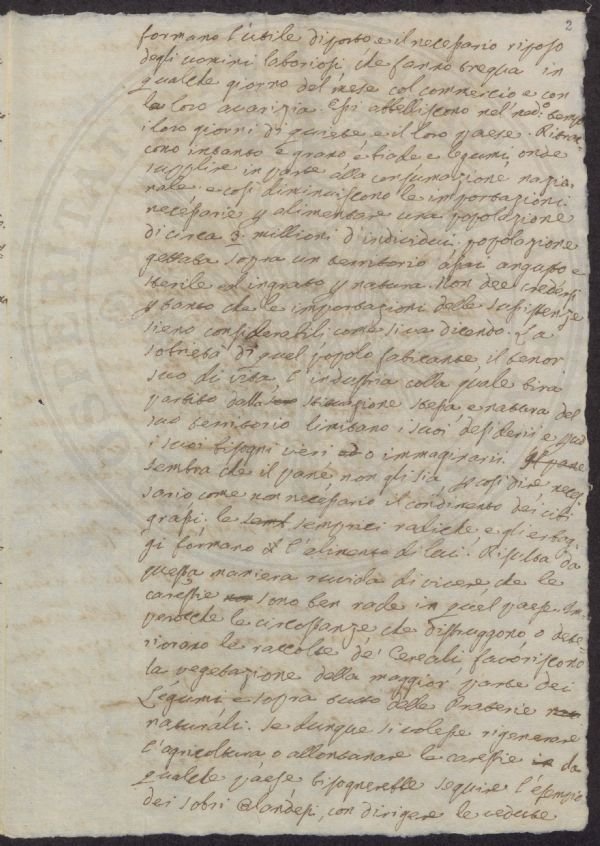 2
formano l'utile diporto e il necessario riposo
degli uomini laboriosi che fanno tregua in
qualche giorno del mese col commercio e con
la loro avarizia. Essi abbelliscono nel med.o temp
i loro giorni di quiete e il loro paese. Ritrag
cono intanto e grano e biade e legumi, onde
supplire in parte alla consumazione nazio
nale, e cosi diminuiscono le importazioni
necessarie p alimentare una popolazione
di circa 3 millioni d'individui, popolazione
gettata sopra un territorio assai angusto e
sterile ed ingrato p natura. Non dee credersi
p tanto che le importazioni delle sussistenze
sieno considerabili come si va dicendo. La
sobrietà di quel popolo fabricante il tenor
suo di vita, l'industria colla quale tira
partito dalla situazione stessa e natura del
suo territorio limitano i suoi desiderii e
i suoi bisogni veri o immaginarii.
sembra che il pane non gli sia p cosi dire neces
sario come non necessario il condimento dei cibi
grassi. le semplici radiche e gli erbag
gi formano l'alimento di lui. Risulta da
questa maniera ruvida di vivere che le
carestie sono ben rade in quel paese. Im
perocche le circostanze che distruggono o dete
riorano le raccolte de' Cereali, favoriscono
la vegetazione della maggior parte dei
Legumi e sopra tutto delle Praterie
naturali. Se dunque si volesse rigenerare
l'agricoltura o allontanare le carestie da
qualche paese bisognerebbe seguire l'esempio
dei sobri Olandesi, con dirigere le vedute